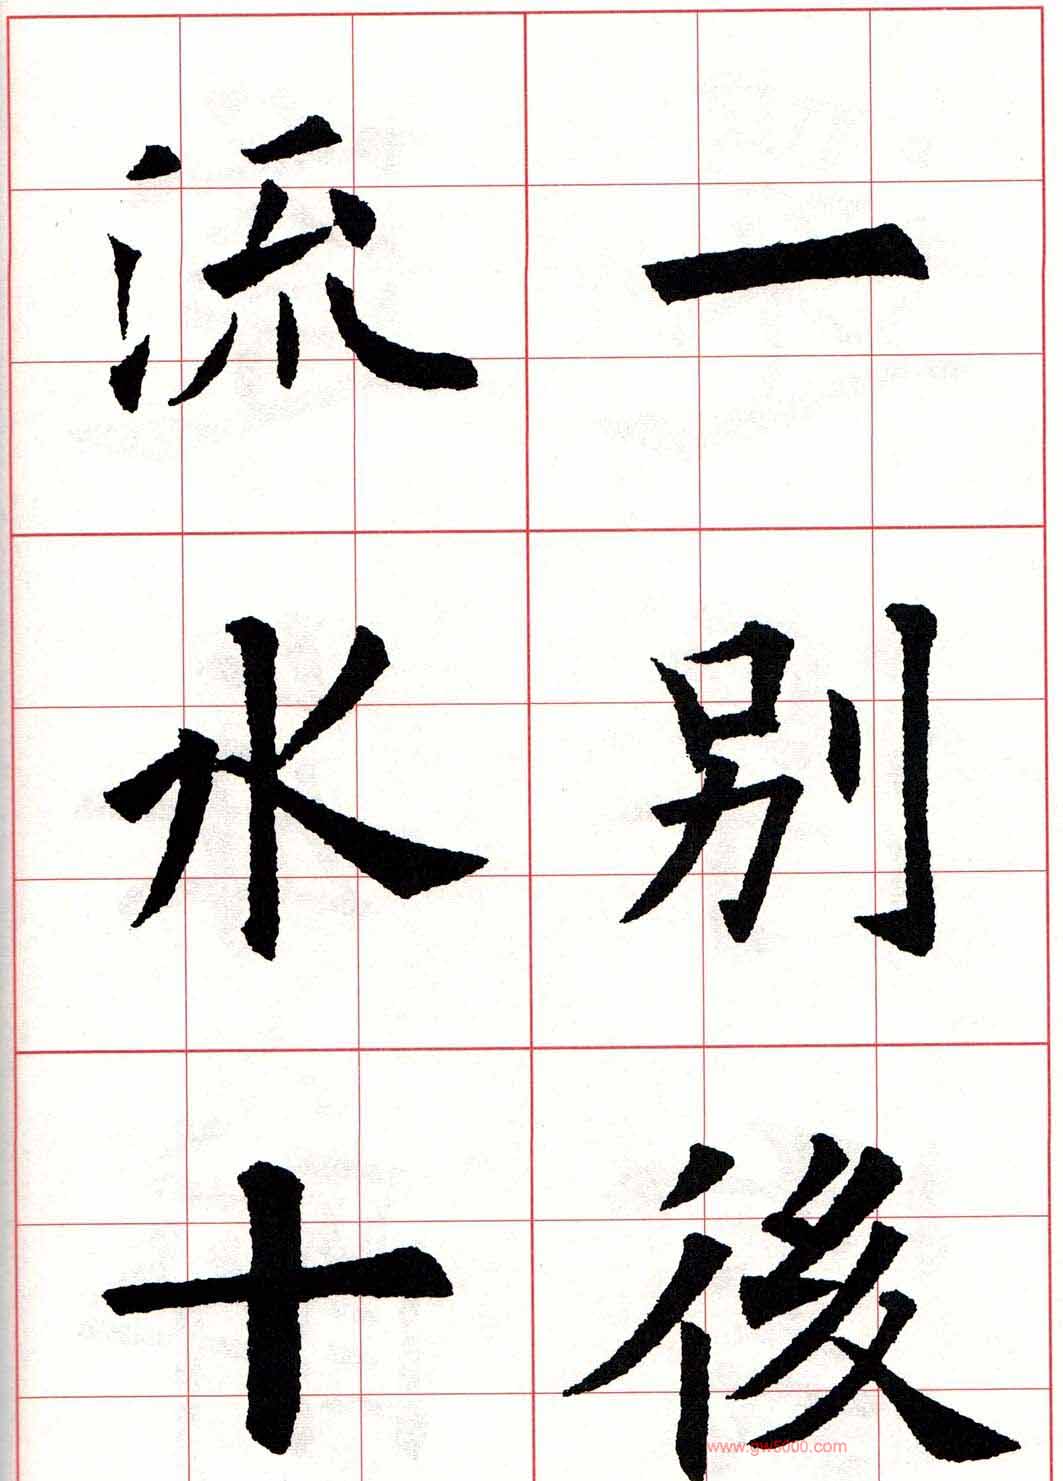 一别後
流水十
www.gw5000.com